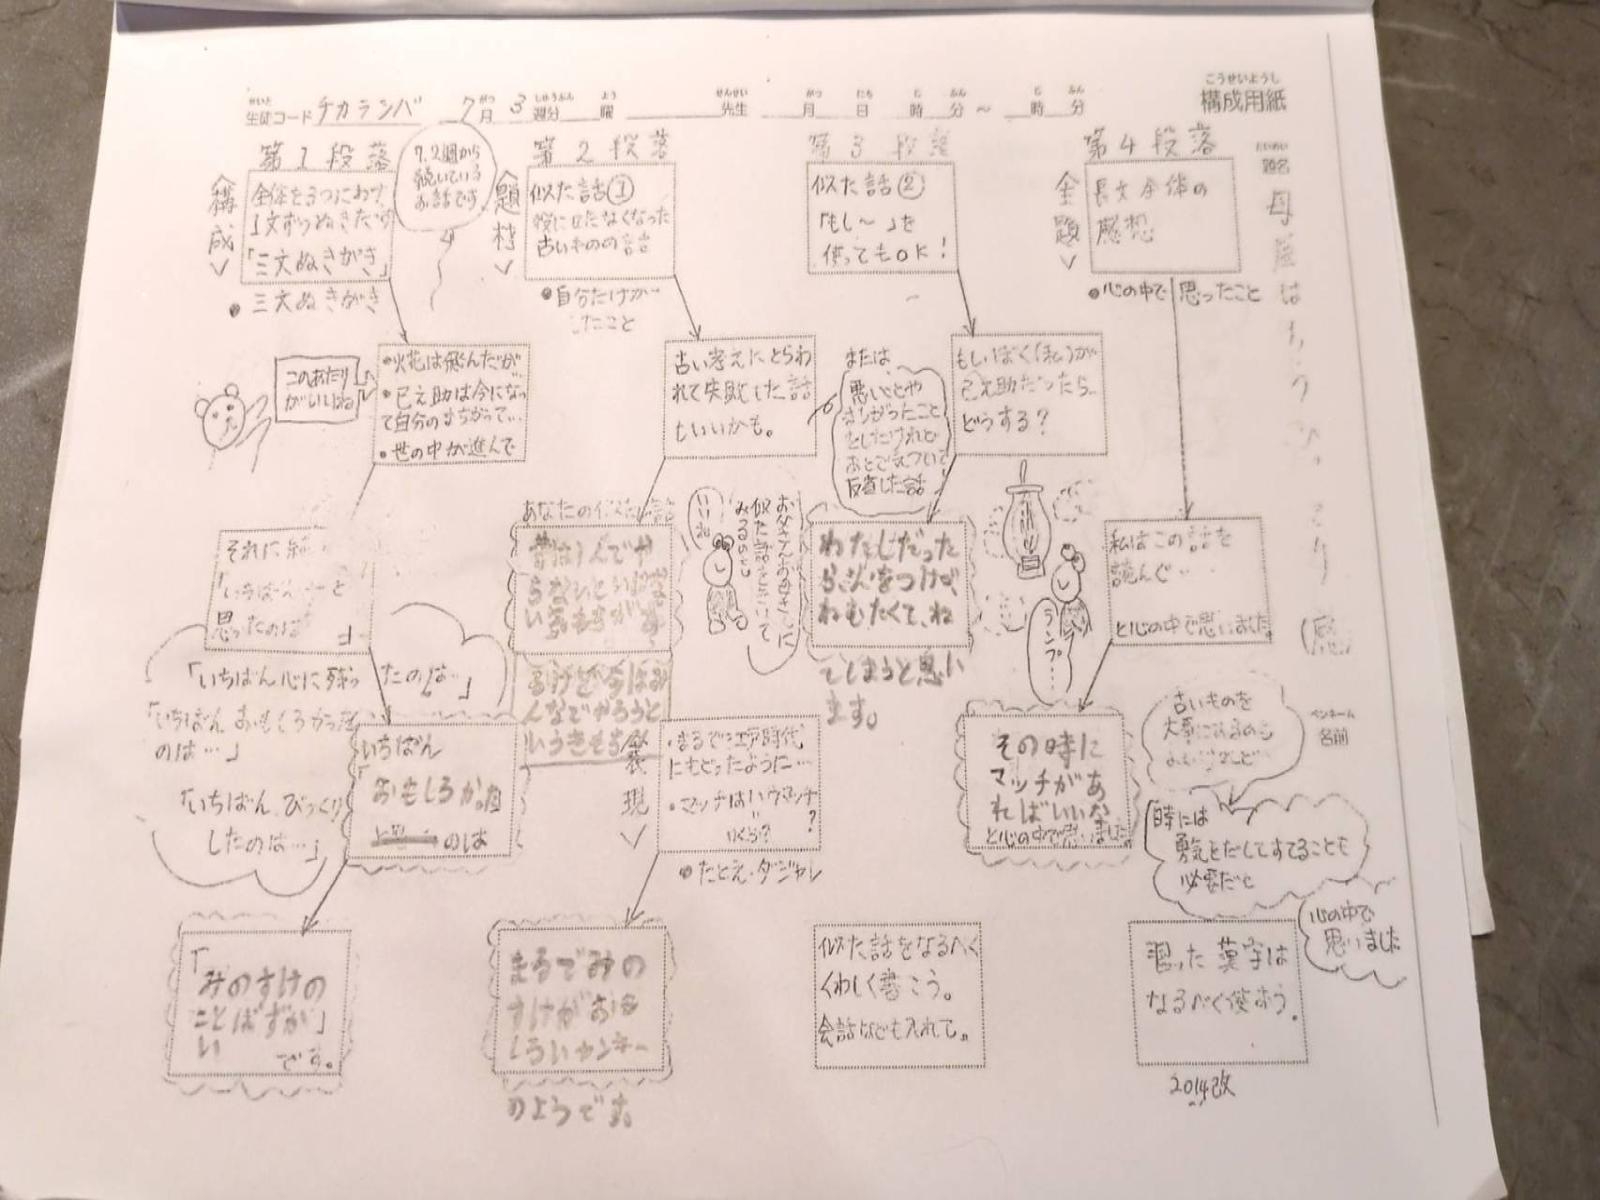 こうせいようし
構成用紙
せいと
生徒コード チカランバ 7月 3週分 曜 先生 月 日 時 分 ～ 時 分
だいめい
題名
第1段落
<構成>
全体を3つにわけ
1文ずつぬきだす
「三文ぬきがき」
●三文ぬきがき
7.2週から
続いている
お話です
このあたり
がいいね
●火花は飛んだが、
●巳之助は今になっ
て自分のまちがって…
●世の中が進んで
それに
「いちばん…と
思ったのは 」
「いちばん心に残ったのは…」
「いちばんおもしろかった
のは…」
「いちばんびっくり
したのは…」
いちばん
「おもしろかった
のは
「みのすけの
ことばずか」
い
です。
第2段落
<題材>
似た話①
役に立たなくなった
古いものの話
●自分だけが…
したこと
古い考えにとらわ
れて失敗した話
もいいかも。
または、
悪いことや
まちがったこと
をしたけれど
あとで気づいて
反省した話
あなたの似た話
るけど、今はみ
んなでやろうと
いうきもち
いいね
お父さんお母さんに
似た話をきいて
みるのも
<表現>
・まるで江戸時代
にもどったように…
・マッチはハウマッチ
いくら?
●たとえ・ダジャレ
まるでみの
すけがおも
しろいヤンキー
のようです。
第3段落
似た話②
「もし～」を
使ってもOK!
もしぼく(私)が
巳之助だったら…
どうする?
わたしだった
ねむたくて、ね
てしまうと思い
ます。
似た話をなるべく
くわしく書こう。
会話なども入れて。
第4段落
<主題>
長文全体の
感想
●心の中で思ったこと
私はこの話を
読んで…
と心の中で思いました。
ランプ…
その時に
マッチがあ
ればいいな
と心の中で思いました。
古いものを
大事にするのも
よいけど…
時には
勇気をだしてすてることも
必要だと
心の中で
思いました
習った漢字は
なるべく使おう。
2014改
ペンネーム
名前